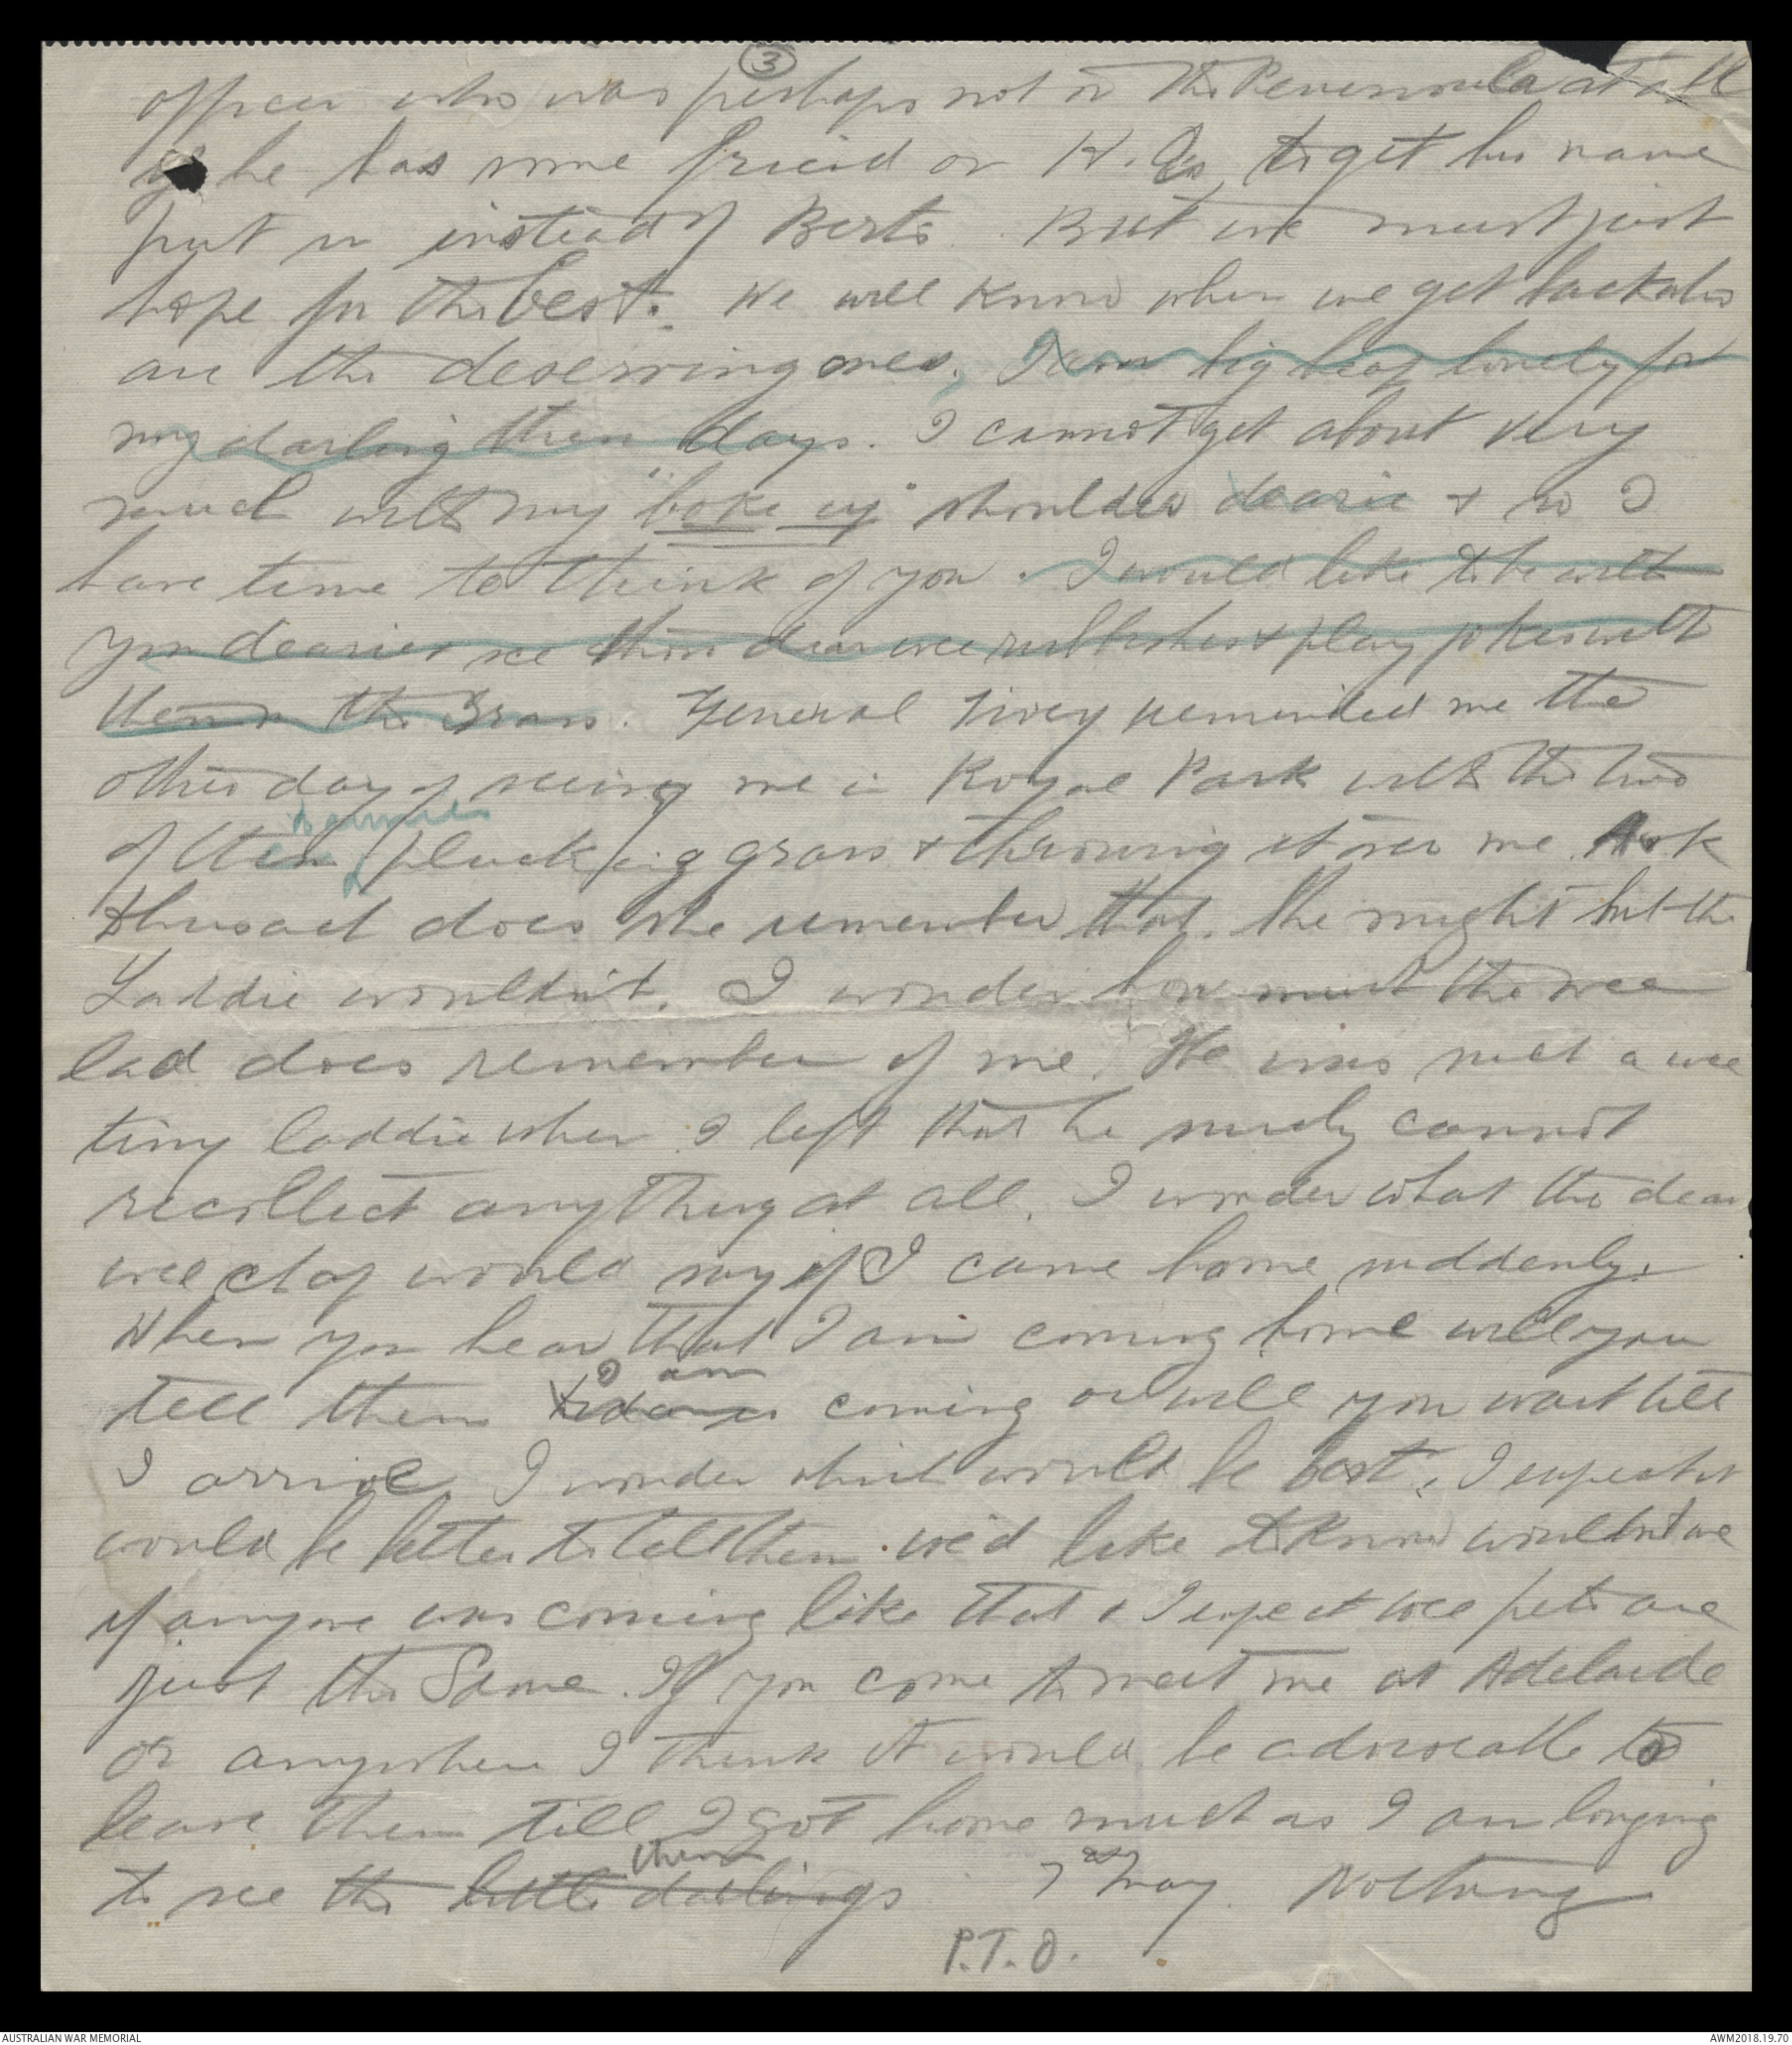 3
officer who was perhaps not on the Peninsula at all
if he has some friend on H.Qs to get his name
put in instead of Berts. But we must just
hope for the best. We will know when we get back who
are the deserving ones. I am big heap lonely for
my darling these days. I cannot get about very
much with my "boke up" shoulder dearie & so I
have time to think of you. I would like to be with
you dearie & see those dear wee rubbishes & play jokes with
them on the Grass. General Tivey reminded me the
other day of seeing me in Royal Park with the two
bairnies
of them plucking grass & throwing it over me. Ask
does she remember that. She might but the
Laddie wouldn't. I wonder how much the wee
lad does remember of me. He was such a wee
tiny laddie when I left that he surely cannot
recollect anything at all. I wonder what the dear
wee chap would say if I came home suddenly.
When you hear that I am coming home will you
I am
tell them coming or will you wait till
I arrive. I wonder which would be best. I expect it
would be better to tell them. we'd like to know wouldn't we
if anyone was coming like that & I expect wee pets are
just the same. If you come to meet me at Adelaide
or anywhere I think it would be advisable to
leave them till I got home much as I am longing
them
to see the little darlings 7th May. Nothing
P.T.O.
AUSTRALIAN WAR MEMORIAL
AWM2018.19.70